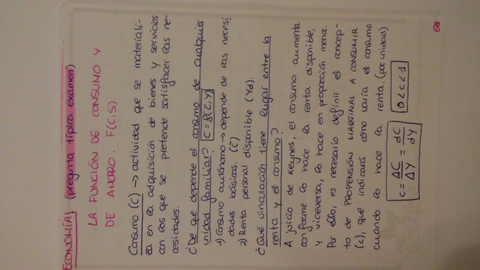 ECONOMÍA (pregunta típica examen)
LA FUNCIÓN DE CONSUMO Y
DE AHORRO. F(C,S).
Consumo (C) → actividad que se materiali-
za en la adquisición de bienes y servicios
con los que se pretende satisfacer las ne-
cesidades.
¿De qué depende el consumo de cualquier
unidad familiar? C = f(C, Y)
1) Consumo autónomo → depende de las necesi
dades básicas. (C)
2) Renta personal disponible (Yd).
¿Qué vinculación tiene lugar entre la
renta y el consumo?
A juicio de Keynes, el consumo aumenta
conforme lo hace la renta disponible,
y viceversa, lo hace en proporción menor.
Por ello, es necesario definir el concep-
to de PROPENSIÓN MARGINAL A CONSUMIR
(c), que indicará cómo varía el consumo
cuando lo hace la renta. (por unidad)
c = ΔC / ΔY = dC / dY 0 < c < 1